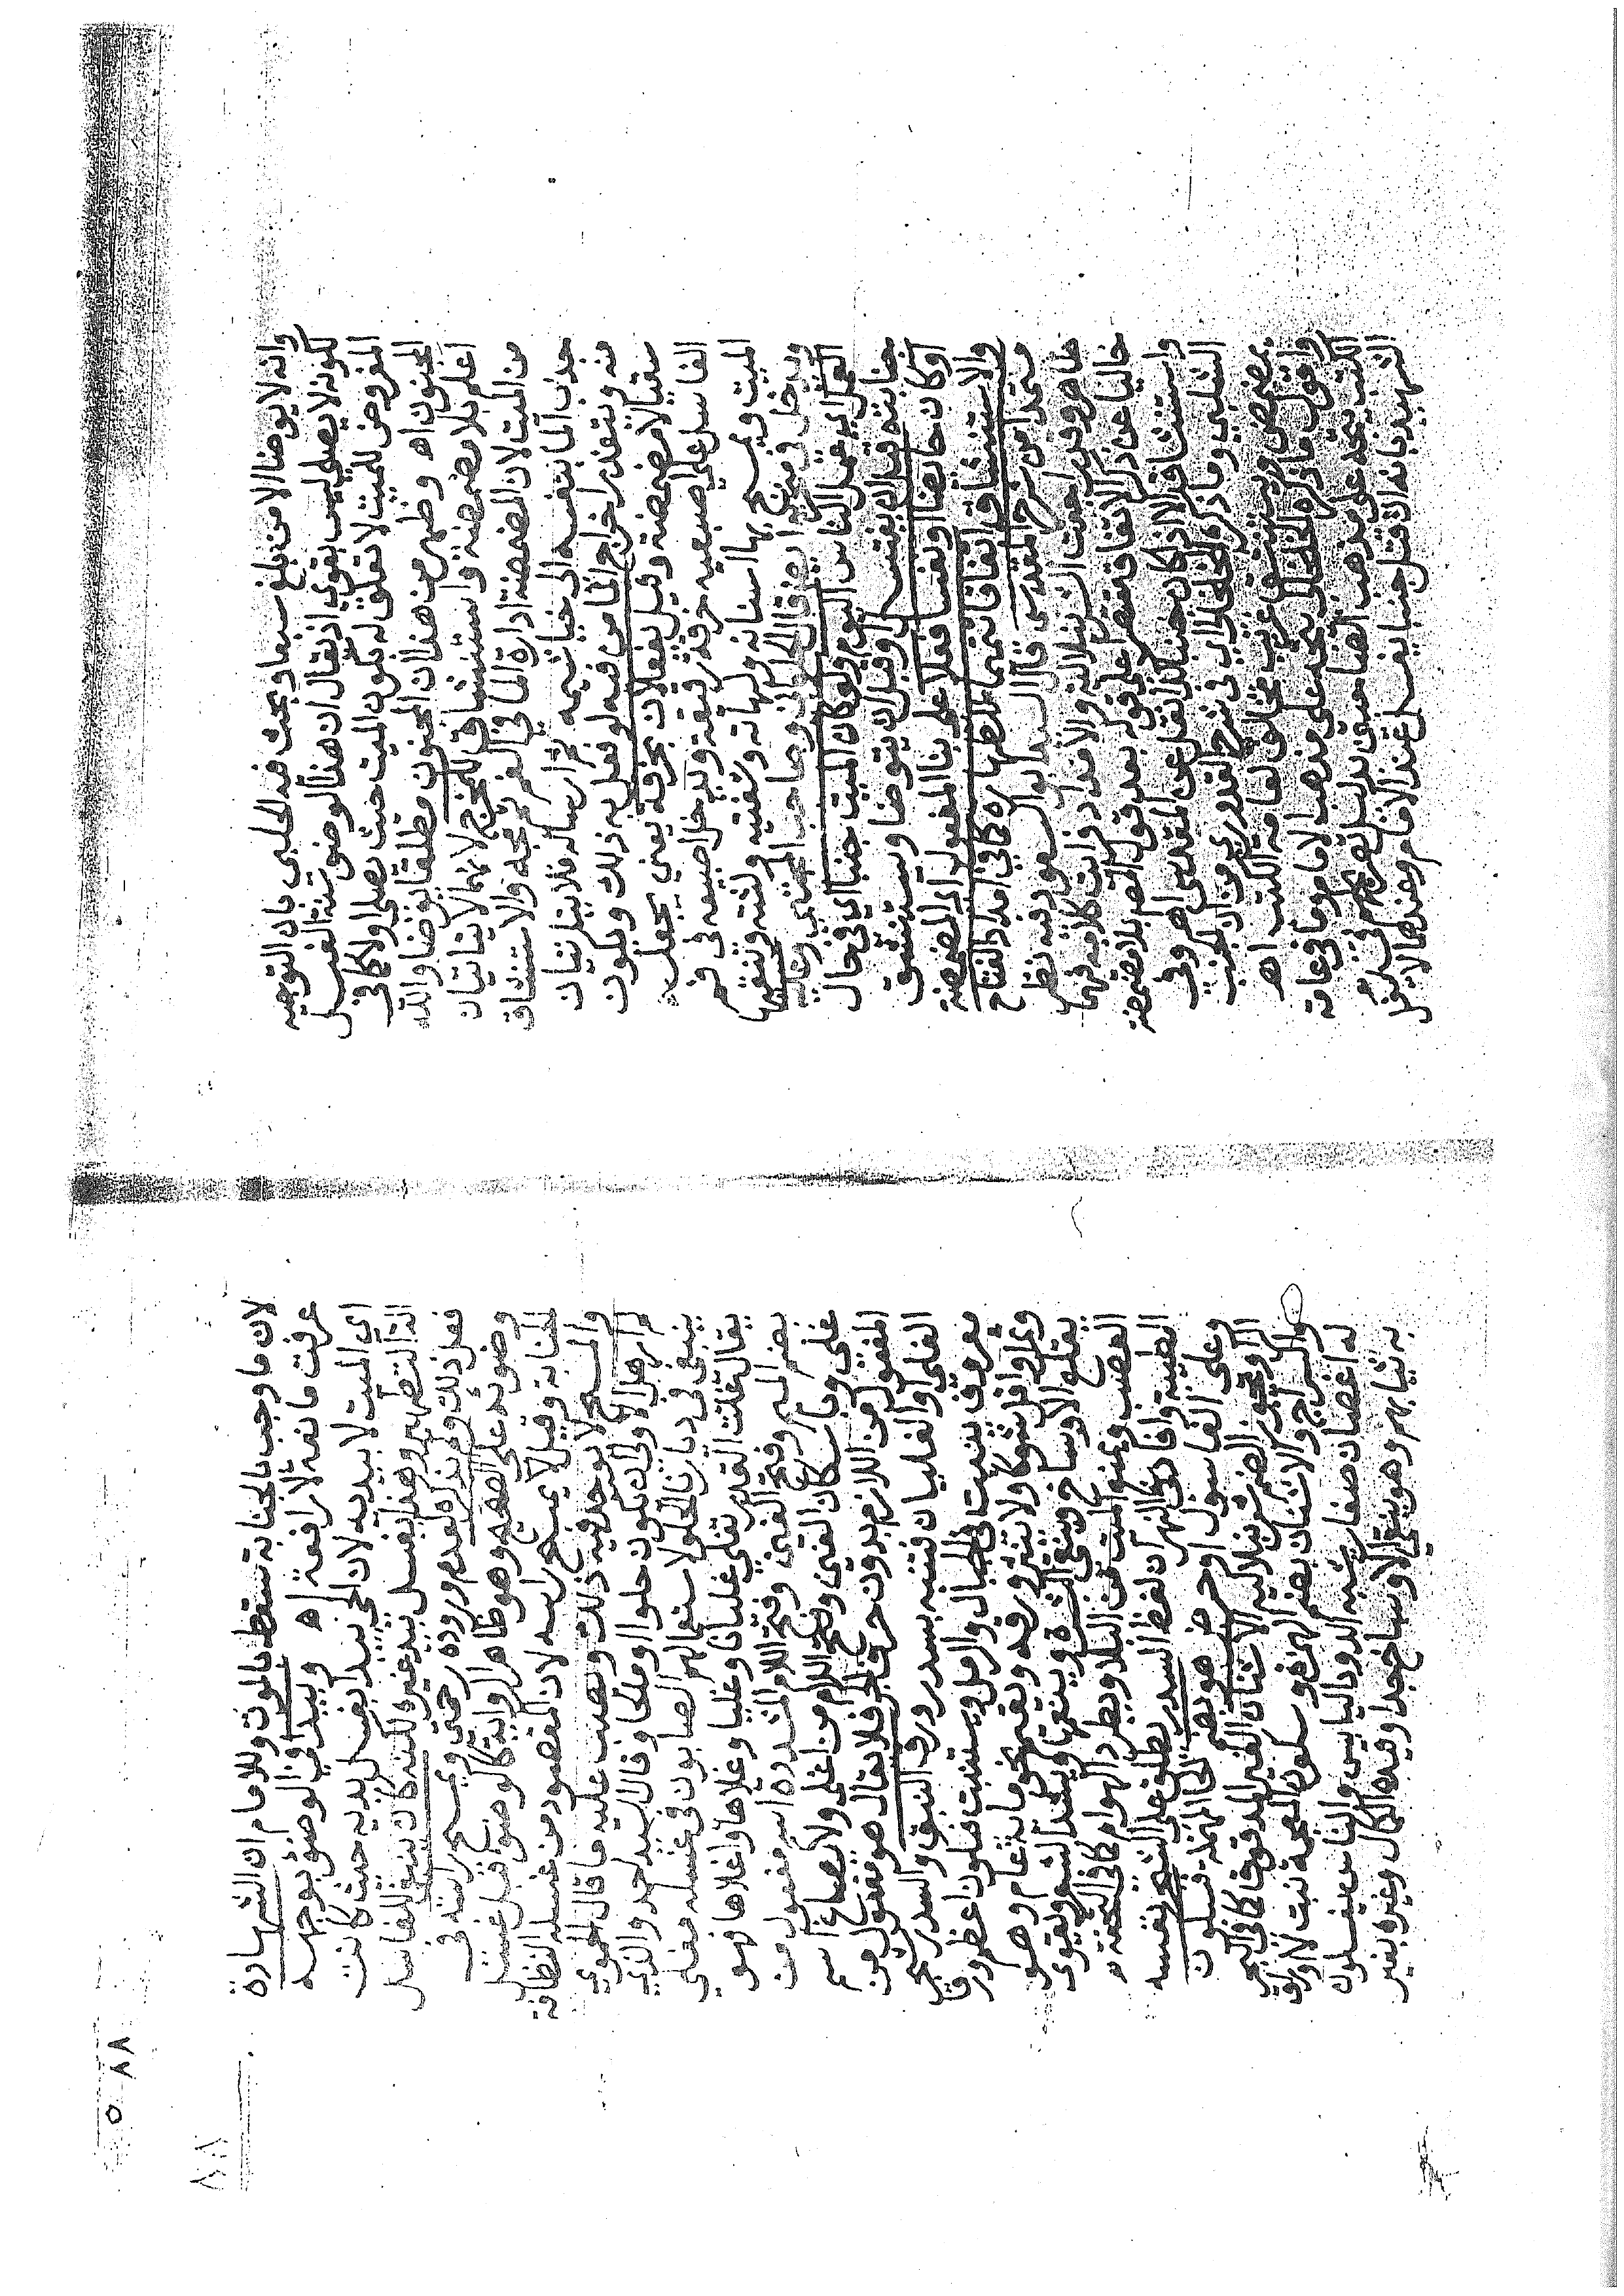 وانه لا يوضا الا من بلغ سبعا وبحث فيه الحلبي بان التوجيه
لكونه لا يصلي ليس بقوي اذ يقال ان هذا الوضوء سنة الغسل
المفروض للميت لا تعلق له بكون الميت حيث يصلي اولا كما في
المجنون اه وظهر من هذا ان المجنون مطلقا يوضا والله
اعلم بلا مضمضة واستنشاق للحرج لانهما لا يتاتيان
من الميت لان المضمضة ادارة الماء في الفم ثم مجه والاستنشاق
جذب الماء بنفسه الى خياشيمه ثم ارساله فلا يتاتيان
منه ويتعذر اخراج الماء من فيه لو فعل به ذلك ويكون
سقيا لا مضمضة وقيل يفعلان بخرقة يعني يجعل
الغاسل على اصبعيه خرقة رقيقة ويدخل اصبعه في فم
الميت ويمسح بها اسنانه ولهاته وشفتيه ولثته وينقيها
ويدخل في منخريه ايضا قال الحلواني وصاحب المجتبى وعليه
العمل اي عمل الناس اليوم ولو كان الميت جنبا اي في حال
جنابته قبل ان يغتسل او قبل ان يتوضا ويستنشق
او كان حائضا او نفسا فعلا على بنا المفعول اي المضمضة
والاستنشاق اتفاقا تتميما للطهارة كما في امداد الفتاح
مستمدا من شرح المقدسي قال السيد ابو السعود فيه نظر
ظاهر وقد راجعت الشرنبلالية والامداد فرايت كلامه فيهما
خاليا عن ذكر الاتفاق مقتصرا على قوله بعد قول المص بلا مضمضة
واستنشاق الا اذا كان جنبا كذا نقل عن المقدسي اه وفي
الشلبي وما ذكره الخلخالي في شرح القدوري من ان الجنب
يمضمض ويستنشق غريب مخالف لعامة الكتب اه
واقول ما ذكره الخلخالي يتجه على مذهب الامام وما في عامة
الكتب يتجه على مذهب الصاحبين بدليل تصريحهم في غسل
الشهيد بانه اذا قتل جنبا يغسل عند الامام وعندهما لا يغسل
لان ما وجب بالجنابة سقط بالموت وللامام ان الشهادة
عرفت مانعة لا رافعة اه ويبدا في الوضوء بوجهه
اي الميت لا بيديه لان الحي يبدا بغسل يديه حيث كانت
الة التطهير وهذا يغسل بيد غيره لكنه كان ينبغي للغاسل
فعل ذلك ولم نذكره لعدم وروده رحمتي ويمسح راسه في
وضوئه على الصحيح وهو ظاهر الرواية كالوضوء قبل غسل
الجنابة وقيل لا يمسح راسه لان المقصود من غسله النظافة
والمسح لا يوجد فيه ذلك ويصب عليه ماء قال الحموي
وهل الاولى ان يكون حلوا او ملحا وقال السيد احمد والذي
ينبغي في ديارنا الحلو لاستعمالهم الصابون في غسله مغلى
يقال غلت القدر تغلي غليانا وغليا وغلاها واغلاها فهو
بضم الميم وفتح الغين وفتح اللام المشددة اسم مفعول من
غلى وباسكان الغين وفتح اللام من اغلى ولا يصاغ اسم
المفعول من اللازم بدون حرف الجر فلا يقال هو مفعول من
الغلي او الغليان فتنبه بسدر ورق النبق والسدر شجر
معروف ينبت في الجبال والرمل ويستنبت فيكون اعظم ورقا
وثمرا واقل شوكا ولا ينثر ورقه ويقيم نحو مائة عام وهو
يقلع الاوساخ وينقي البشرة وينعمها ويشد الشعر ويقوي
العصب ويمنع الميت من البلا ويطرد الهوام كما في التحفة
الطبية وافاد في النهر ان لفظ السدر يطلق على الشجر نفسه
وعلى الغاسول او حرض هو بضم الحاء المهملة فسكون
الراء ويجوز الضم شرنبلالية الاشنان الغير المدقوق كما في البحر
والسراج والاشنان بضم الهمزة وسكون المعجمة نبت لا اوراق
له اغصان صغار تشبه الدود اليابس والناس يغسلون
به ثيابهم وهو ينقي الاوساخ جدا وقيده الكمال وغيره بغير
٨٨